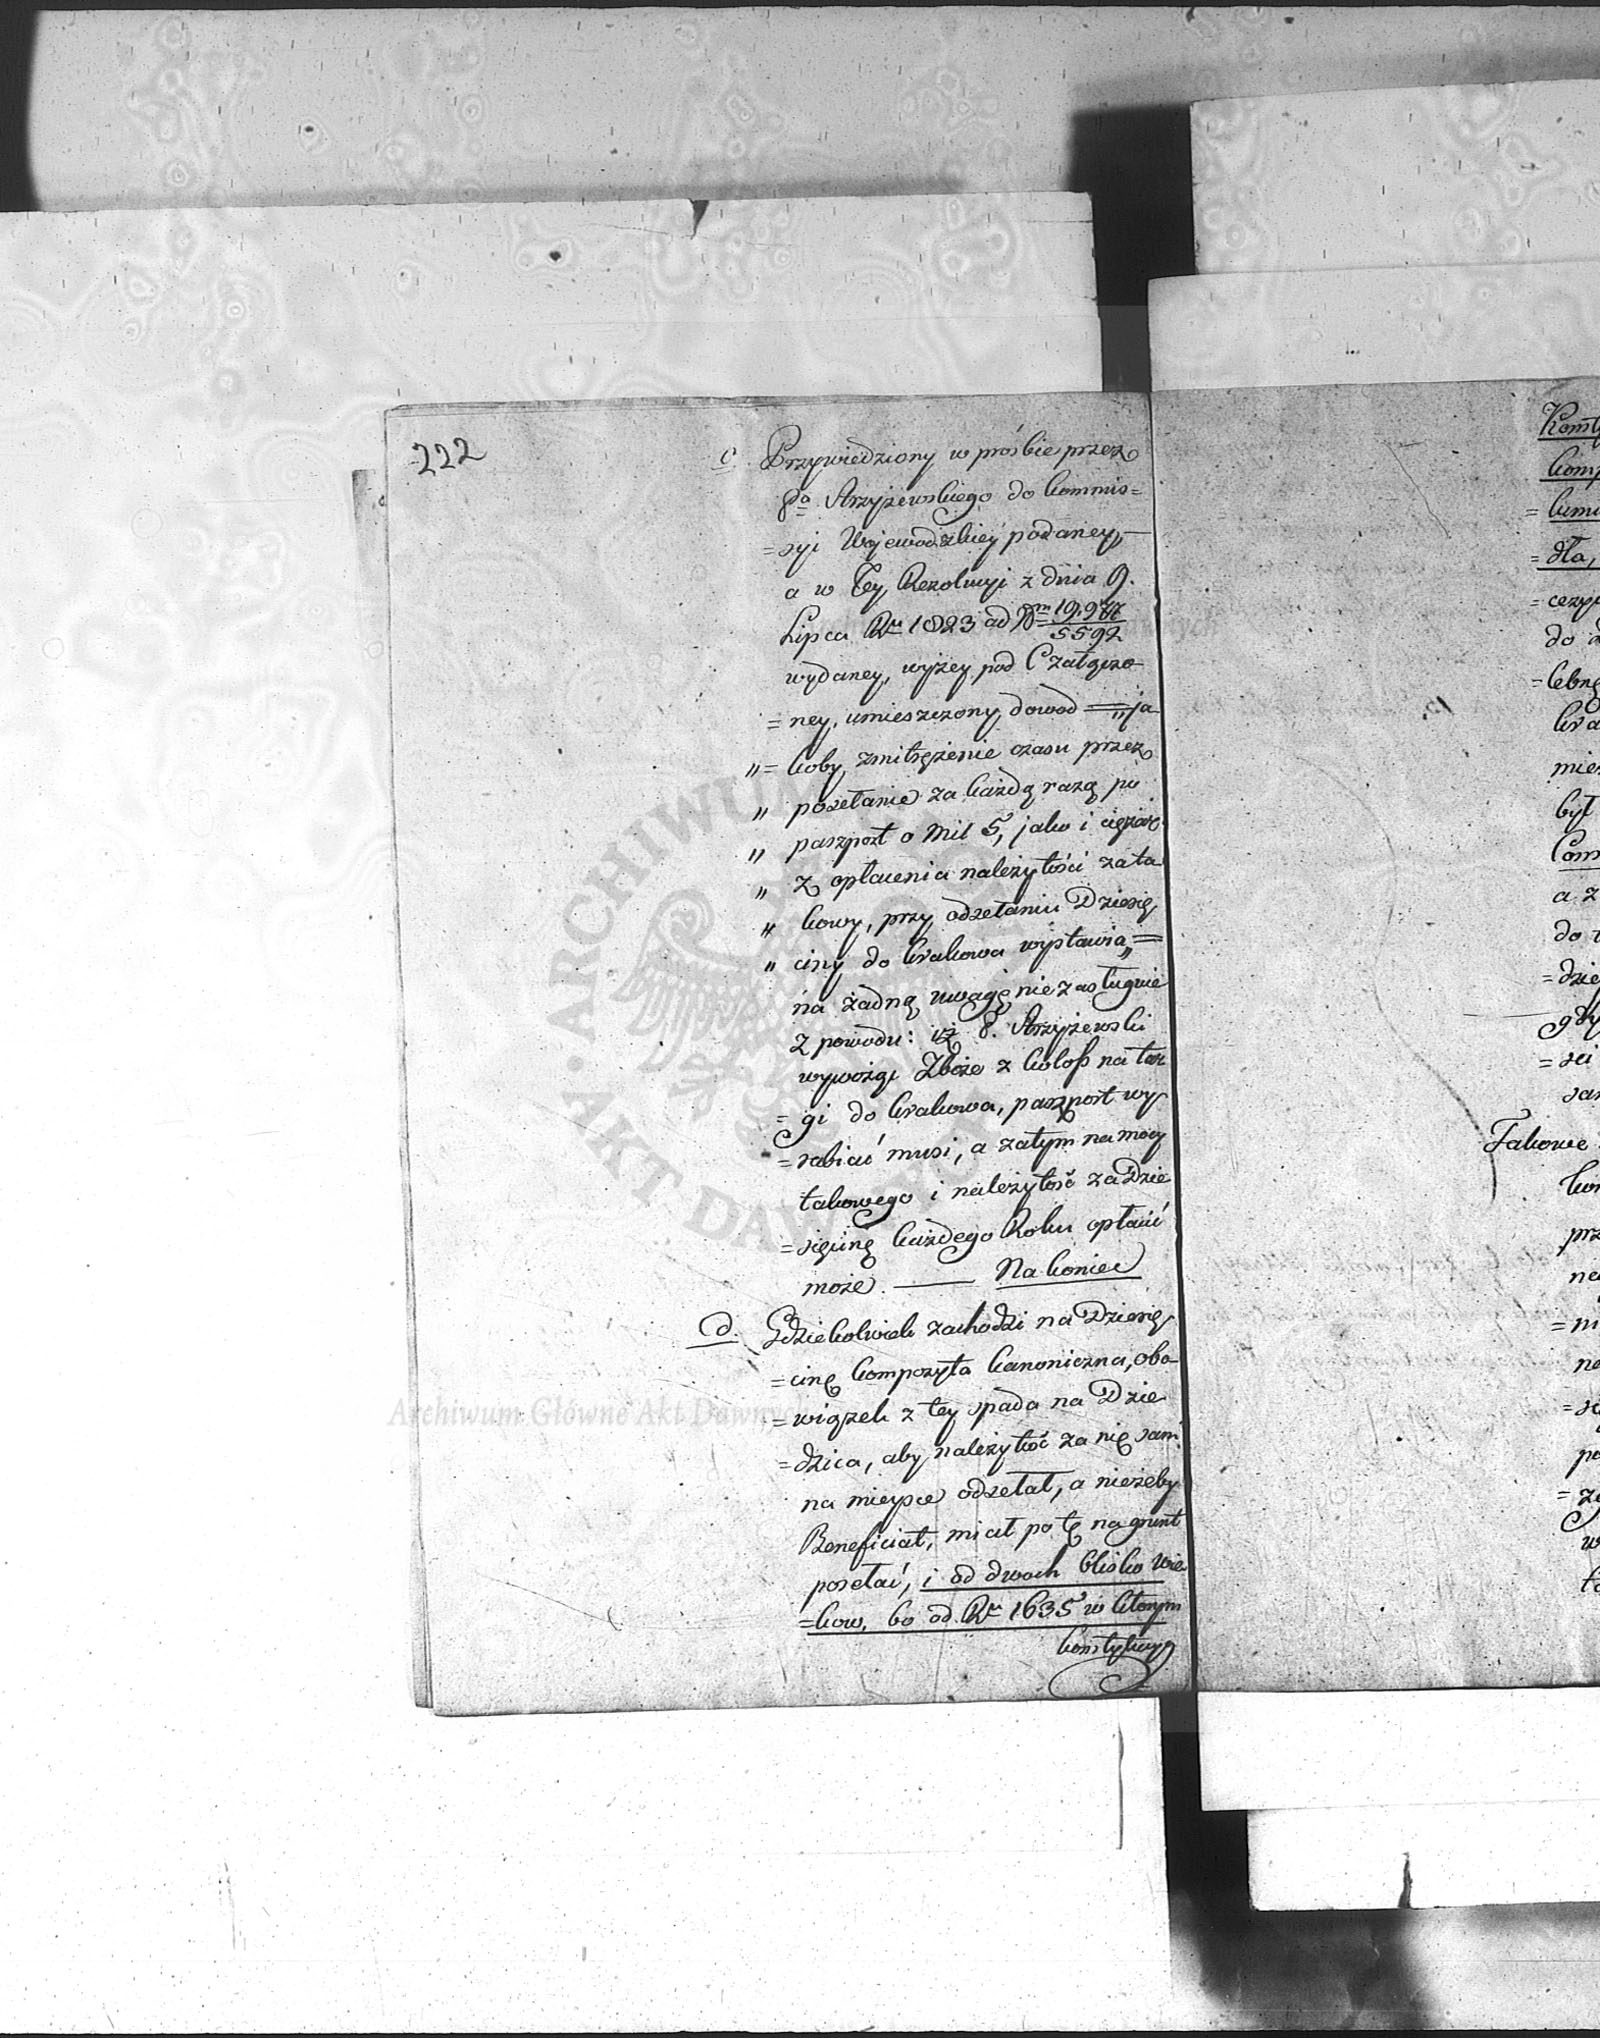 222
c Przywiedziony w prośbie przez
Pa Strzyżewskiego do Kommis=
=syi Wojewodzkiey podaney,—
a w tey Rezolucyi z dnia 9.
Lipca Ru 1823 ad Num 19,977/5592
wydaney, wyżey pod C załączo=
=ney, umieszczony dowod = „ja
„= koby zmitrężenie czasu przez
„ posełanie za każdą razą po
„ paszport o Mil 5, jako i ciężar
„ z opłacenia należytości za ta
„ kowy, przy odsełaniu Dziesię
„ ciny do Krakowa wystawia„ =
na żadną uwagę nie zasługuie
z powodu: iż P. Strzyżewski
wywożąc Zboże z Koloss na tar
= gi do Krakowa, paszport wy
= rabiać musi, a zatym na mocy
takowego i należytość za Dzie
= sięcinę każdego Roku opłacić
może. —— Na koniec
d. Gdziekolwiek zachodzi na Dziesię
= cinę Kompozyta Kanoniczna, obo=
= wiązek z tey spada na Dzie
= dzica, aby należytość za nię sam
na mieysce odsełał, a nieżeby
Beneficiat, miał po tę na grunt
posełać, i od dwoch blisko wie
= kow, bo od Ru 1635 w ktorym
Komty
Komp
=
= dła,
=
do
=
mies
był
Com
a z
do
= dzie
gdy
= sci
Takowe
kon
prz
na
= ni
na
=
po
= 
w
Archiwum Główne Akt Dawnych
ARCHIWUM
AKT DAW